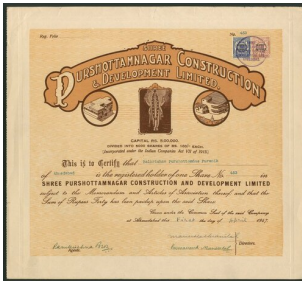 Reg. Folio
No.
SHREE
PURSHOTTAMNAGAR CONSTRUCTION
& DEVELOPMENT LIMITED.
CAPITAL RS. 5,00,000.
DIVIDED INTO 5000 SHARES OF RS. 100/- EACH.
(Incorporated under the Indian Companies Act VII of 1913).
This is to Certify that
of is the registered holder of one Share No. in
SHREE PURSHOTTAMNAGAR CONSTRUCTION AND DEVELOPMENT LIMITED
subject to the Memorandum and Articles of Association thereof and that the
Sum of Rupees Forty has been paid up upon the said Share.
Given under the Common Seal of the said Company
at Ahmedabad this day of 1947.
Agents.
Directors.